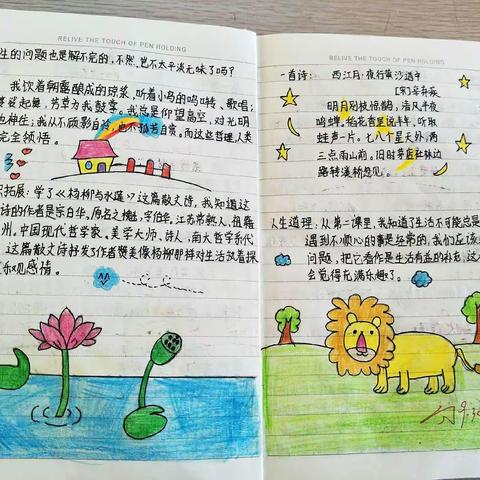 RELIVE THE TOUCH OF PEN HOLDING
生的问题也是解不完的,不然,岂不太平淡无味了吗?
我饮着朝露酿成的琼浆,听着小鸟的鸣啭、歌唱;
婆娑起舞,芳草为我鼓掌。我总是仰望高空,对光明
也神往;我从不顾影自怜,也不孤芳自赏。而这些哲理,人类
完全领悟。
识拓展:学了《杨柳与水莲》这篇散文诗,我知道这
诗的作者是宗白华,原名之櫆,字伯华,江苏常熟人,祖籍
州,中国现代哲学家、美学大师、诗人,南大哲学系代
这篇散文诗抒发了作者赞美像杨柳那样对生活执着探
乐观感情。
RELIVE THE TOUCH OF PEN HOLDING
一首诗: 西江月·夜行黄沙道中
[宋]辛弃疾
明月别枝惊鹊,清风半夜
鸣蝉。稻花香里说丰年,听取
蛙声一片。七八个星天外,两
三点雨山前。旧时茅店社林边
路转溪桥忽见。
人生道理:从第二课里,我知道了生活不可能总是
遇到不顺心的事是经常的,我们应该
问题,把它看作是生活有益的补充,这
会觉得充满乐趣了。